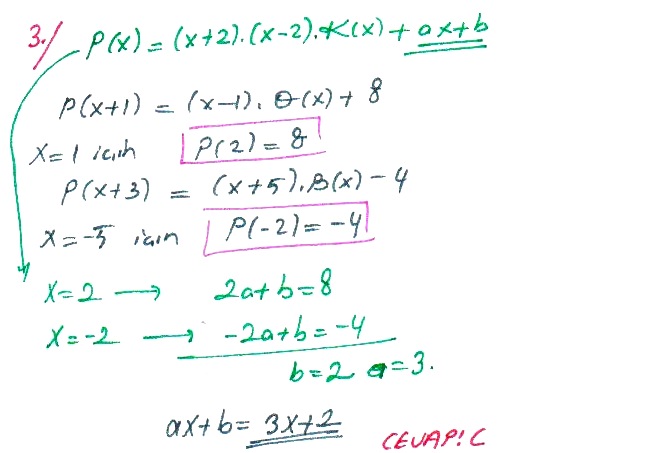 3./ P(x) = (x+2).(x-2).K(x) + ax+b
P(x+1) = (x-1). Θ(x) + 8
x=1 için P(2) = 8
P(x+3) = (x+5).B(x) - 4
x=-5 için P(-2) = -4
x=2 → 2a+b=8
x=-2 → -2a+b=-4
b=2 a=3.
ax+b= 3x+2
CEVAP: C